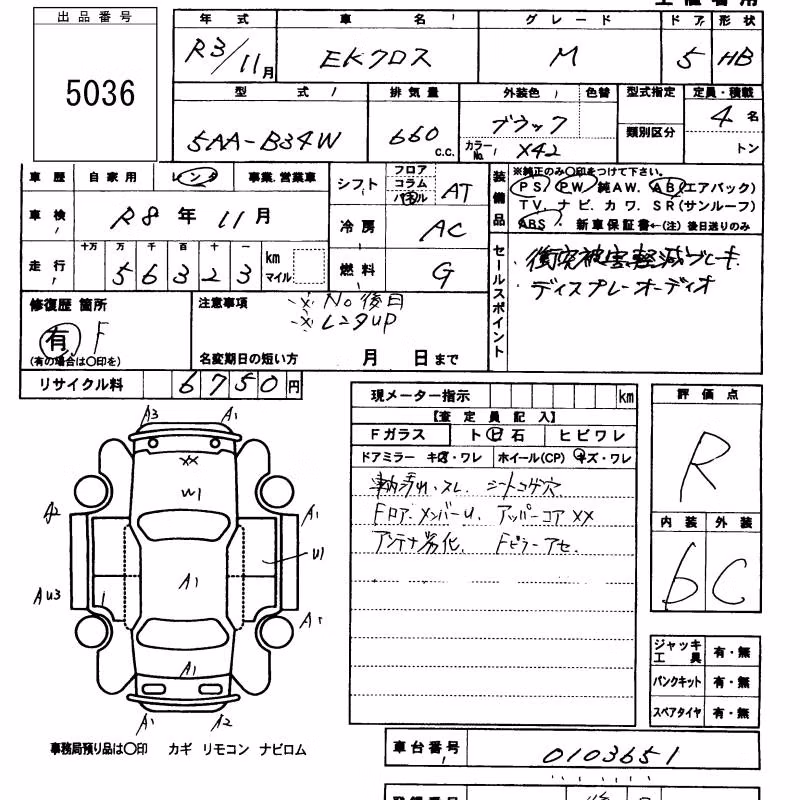 出品番号
5036
年式 車名 グレード ドア 形状
R3/11月 EKクロス M 5 HB
型式 排気量 外装色 色替 型式指定 定員・積載
類別区分
5AA-B34W 660 c.c. ブラック 4名
カラーNo. X42 トン
車歴 自家用 レンタ 事業.営業車
車検 R8年11月
走行 十万 万 千 百 十 一 km マイル
56323
シフト フロア コラム パネル AT
冷房 AC
燃料 G
装備品
※純正のみ〇印をつけて下さい。
PS PW 純AW. AB(エアバック)
TV. ナビ. カワ. SR(サンルーフ)
ABS. 新車保証書←(注)後日送りのみ
セールスポイント
・衝突被害軽減ブレーキ
・ディスプレーオーディオ
修復歴 箇所
有 F
(有の場合は〇印を)
注意事項
※No後日
※レンタUP
名変期日の短い方 月 日まで
リサイクル料 6750円
現メーター指示 km
【査定員記入】
Fガラス トビ石 ヒビワレ
ドアミラー キズ・ワレ ホイール(CP) キズ・ワレ
車内汚れ.スレ. シートコゲ穴
Fロア.メンバーU. アッパーコアXX
アンテナ劣化. Fピラーアセ.
評価点
R
内装 外装
b C
ジャッキ工具 有・無
パンクキット 有・無
スペアタイヤ 有・無
A3 A1
XX
W1
A2 A1
U1
AU3 A1 A1
A1
A1 A2
事務局預り品は〇印 カギ リモコン ナビロム
車台番号 0103651